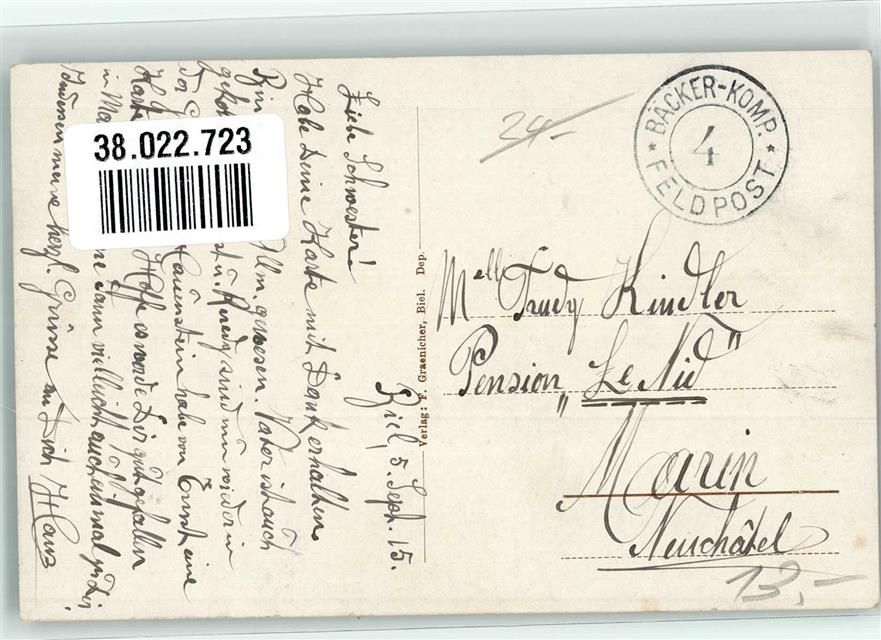 38.022.723
24.-
BÄCKER-KOMP.
4
FELDPOST
Verlag: F. Graenicher, Biel. Dep.
Melle Trudy Kindler
Pension „Le Nid"
Marin
Neuchâtel
13,-
Biel, 5. Sept. 15.
Liebe Schwester!
Habe Deine Karte mit Dank erhalten
Bin gewesen. Vater ist auch
u. Ruedy sind nun wieder in
Lauenstein habe von Ernst eine
Karte Hoffe es werde Dir gut gefallen
in dann vielleicht auch einmal zu Dir.
Indessen meine herzl. Grüsse an Dich Hans